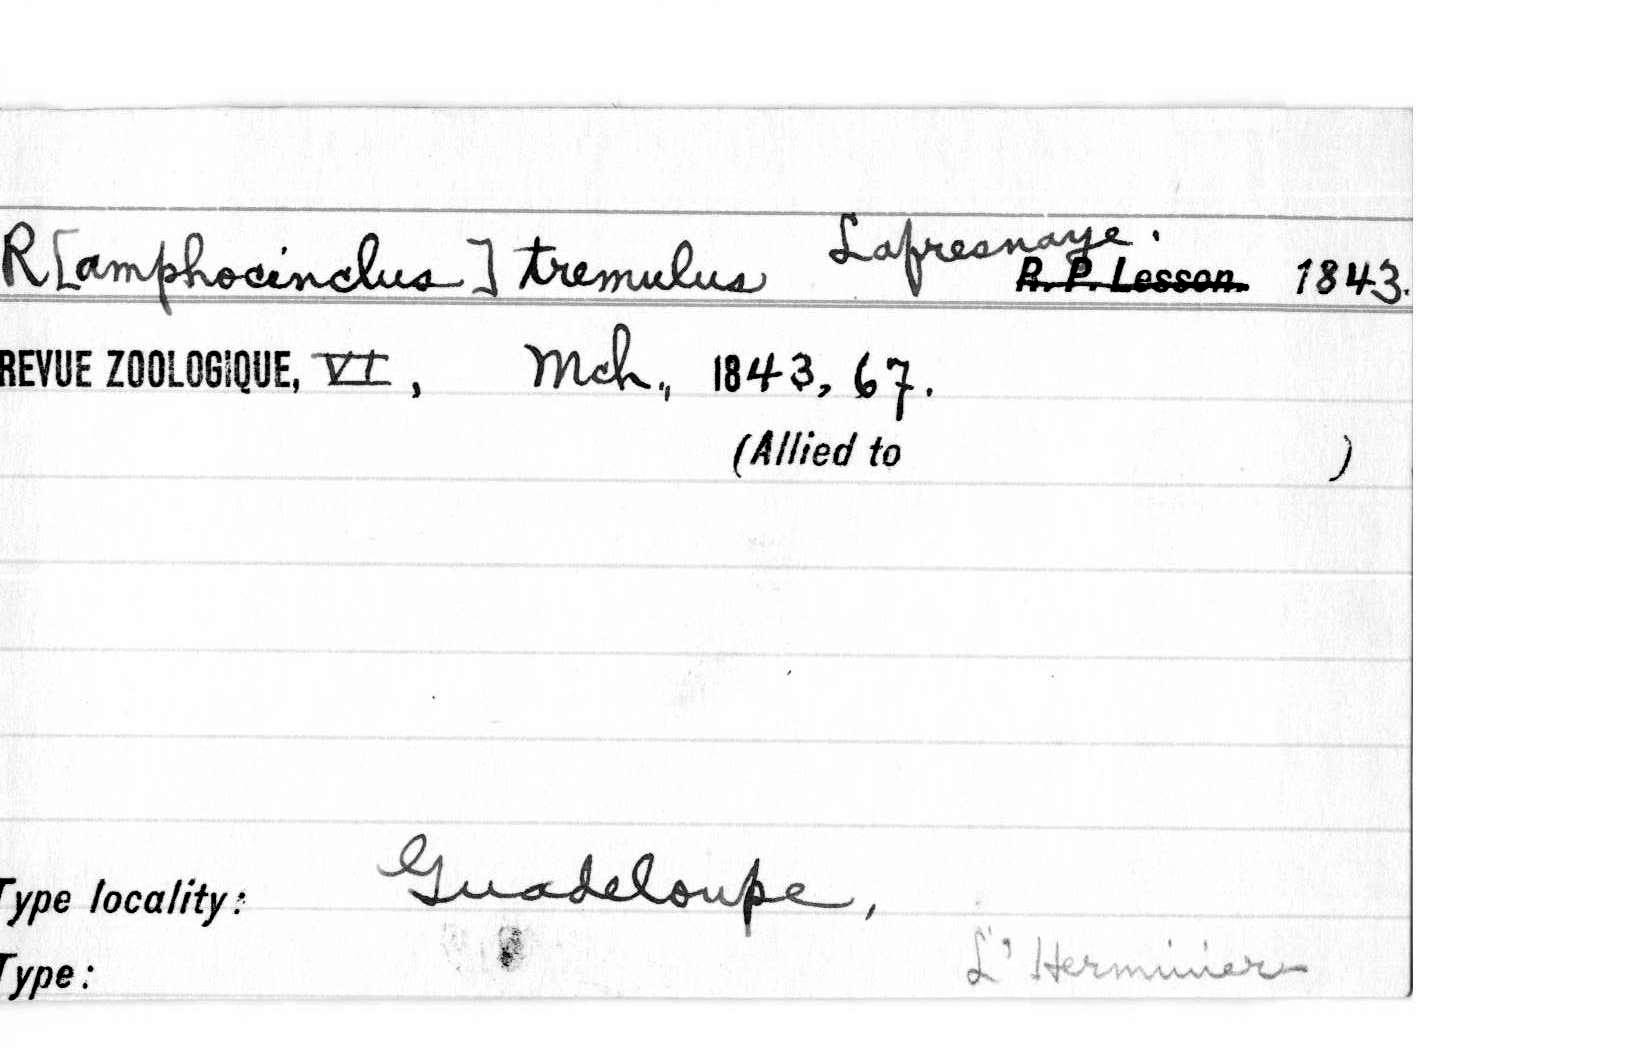 R[amphocinclus] tremulus Lafresnaye. R. P. Lesson. 1843.
REVUE ZOOLOGIQUE, VI, Mch., 1843, 67.
(Allied to )
Type locality: Guadeloupe,
Type: L'Herminier